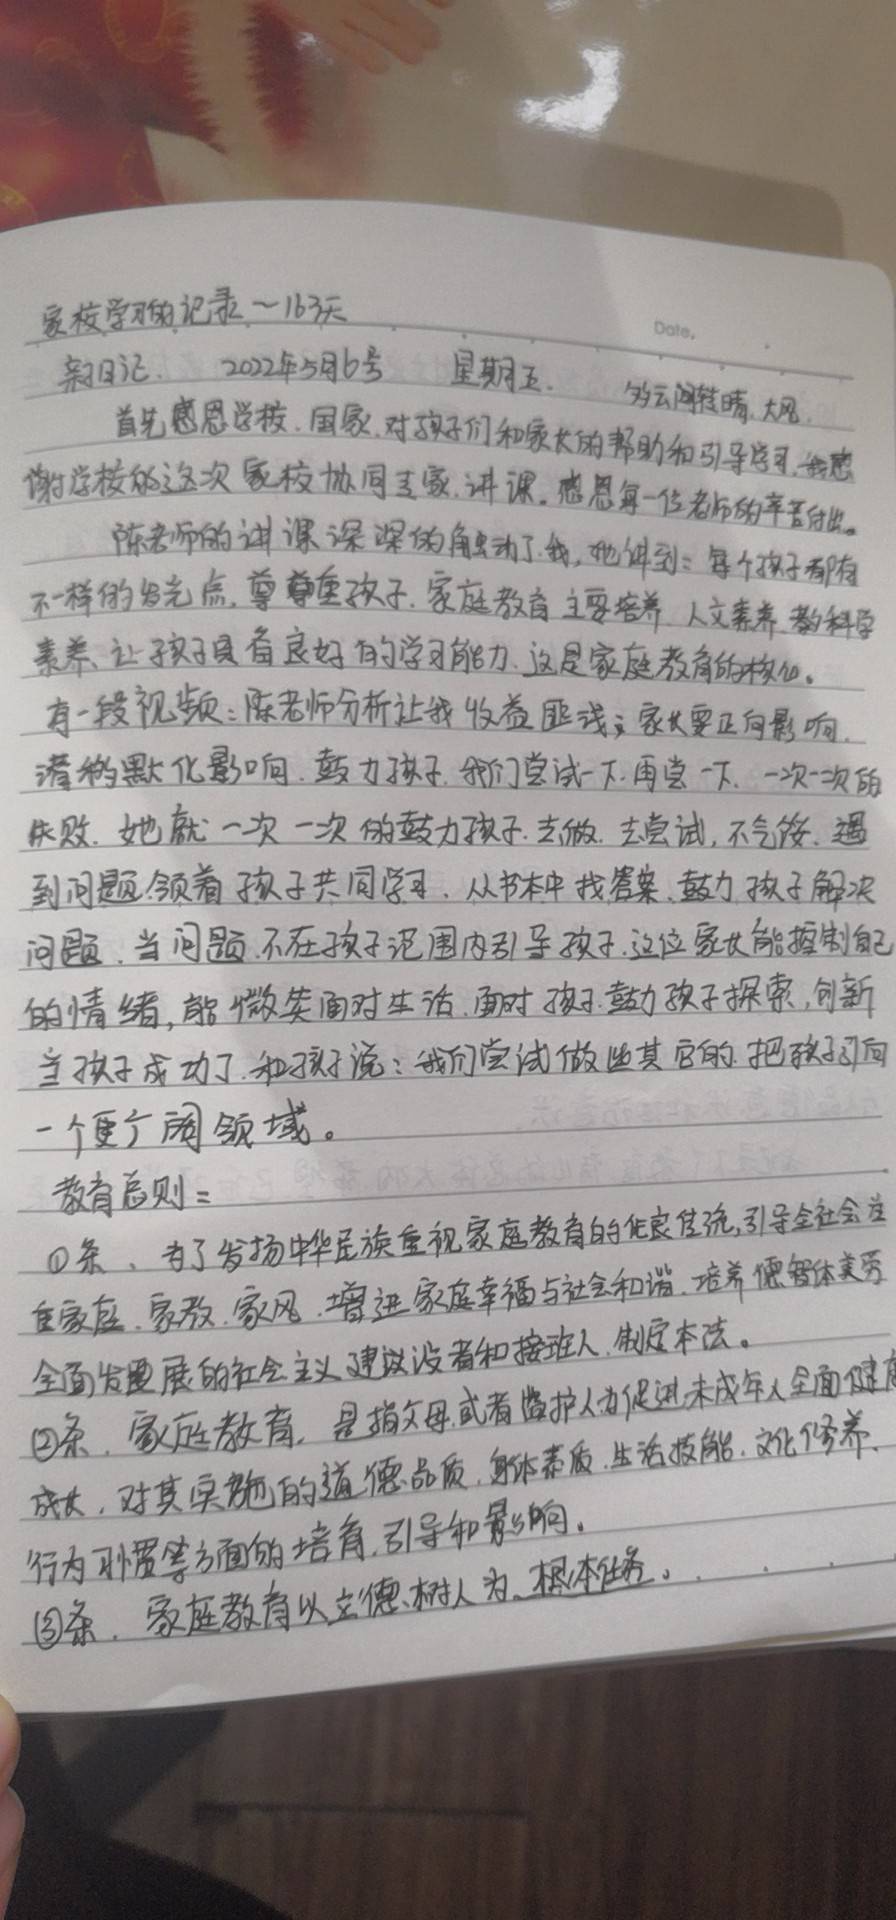 家校学习的记录～163天
Date.
亲子日记. 2022年5月6号 星期五. 多云间转晴.大风.
首先感恩学校.国家.对孩子们和家长的帮助和引导学习.我感
谢学校的这次家校协同专家.讲课。感恩每一位老师的辛苦付出。
陈老师的讲课深深的触动了我,他讲到:每个孩子都有
不一样的发光点,尊重孩子.家庭教育主要培养 人文素养 科学
素养、让孩子具备良好的学习能力.这是家庭教育的核心。
有一段视频:陈老师分析让我收益匪浅;家长要正向影响.
潜移默化影响.鼓力孩子.我们尝试一下.再尝一下.一次一次的
失败.她就一次一次的鼓力孩子.去做.去尝试,不气馁.遇
到问题.领着孩子共同学习.从书本中找答案.鼓力孩子解决
问题.当问题.不在孩子范围内引导孩子.这位家长能控制自己
的情绪,能微笑面对生活.面对孩子.鼓力孩子探索,创新
当孩子成功了.和孩子说:我们尝试做些其它的.把孩子引向
一个更广阔领域。
教育总则:
①条、为了发扬中华民族重视家庭教育的优良传统,引导全社会注
重家庭.家教.家风.增进家庭幸福与社会和谐.培养德智体美劳
全面发展的社会主义建设者和接班人.制定本法。
②条.家庭教育,是指父母.或者监护人为促进未成年人全面健康
成长.对其实施的道德品质.身体素质.生活技能.文化修养.
行为习惯等方面的培育.引导和影响。
③条.家庭教育以立德树人为.根本任务。